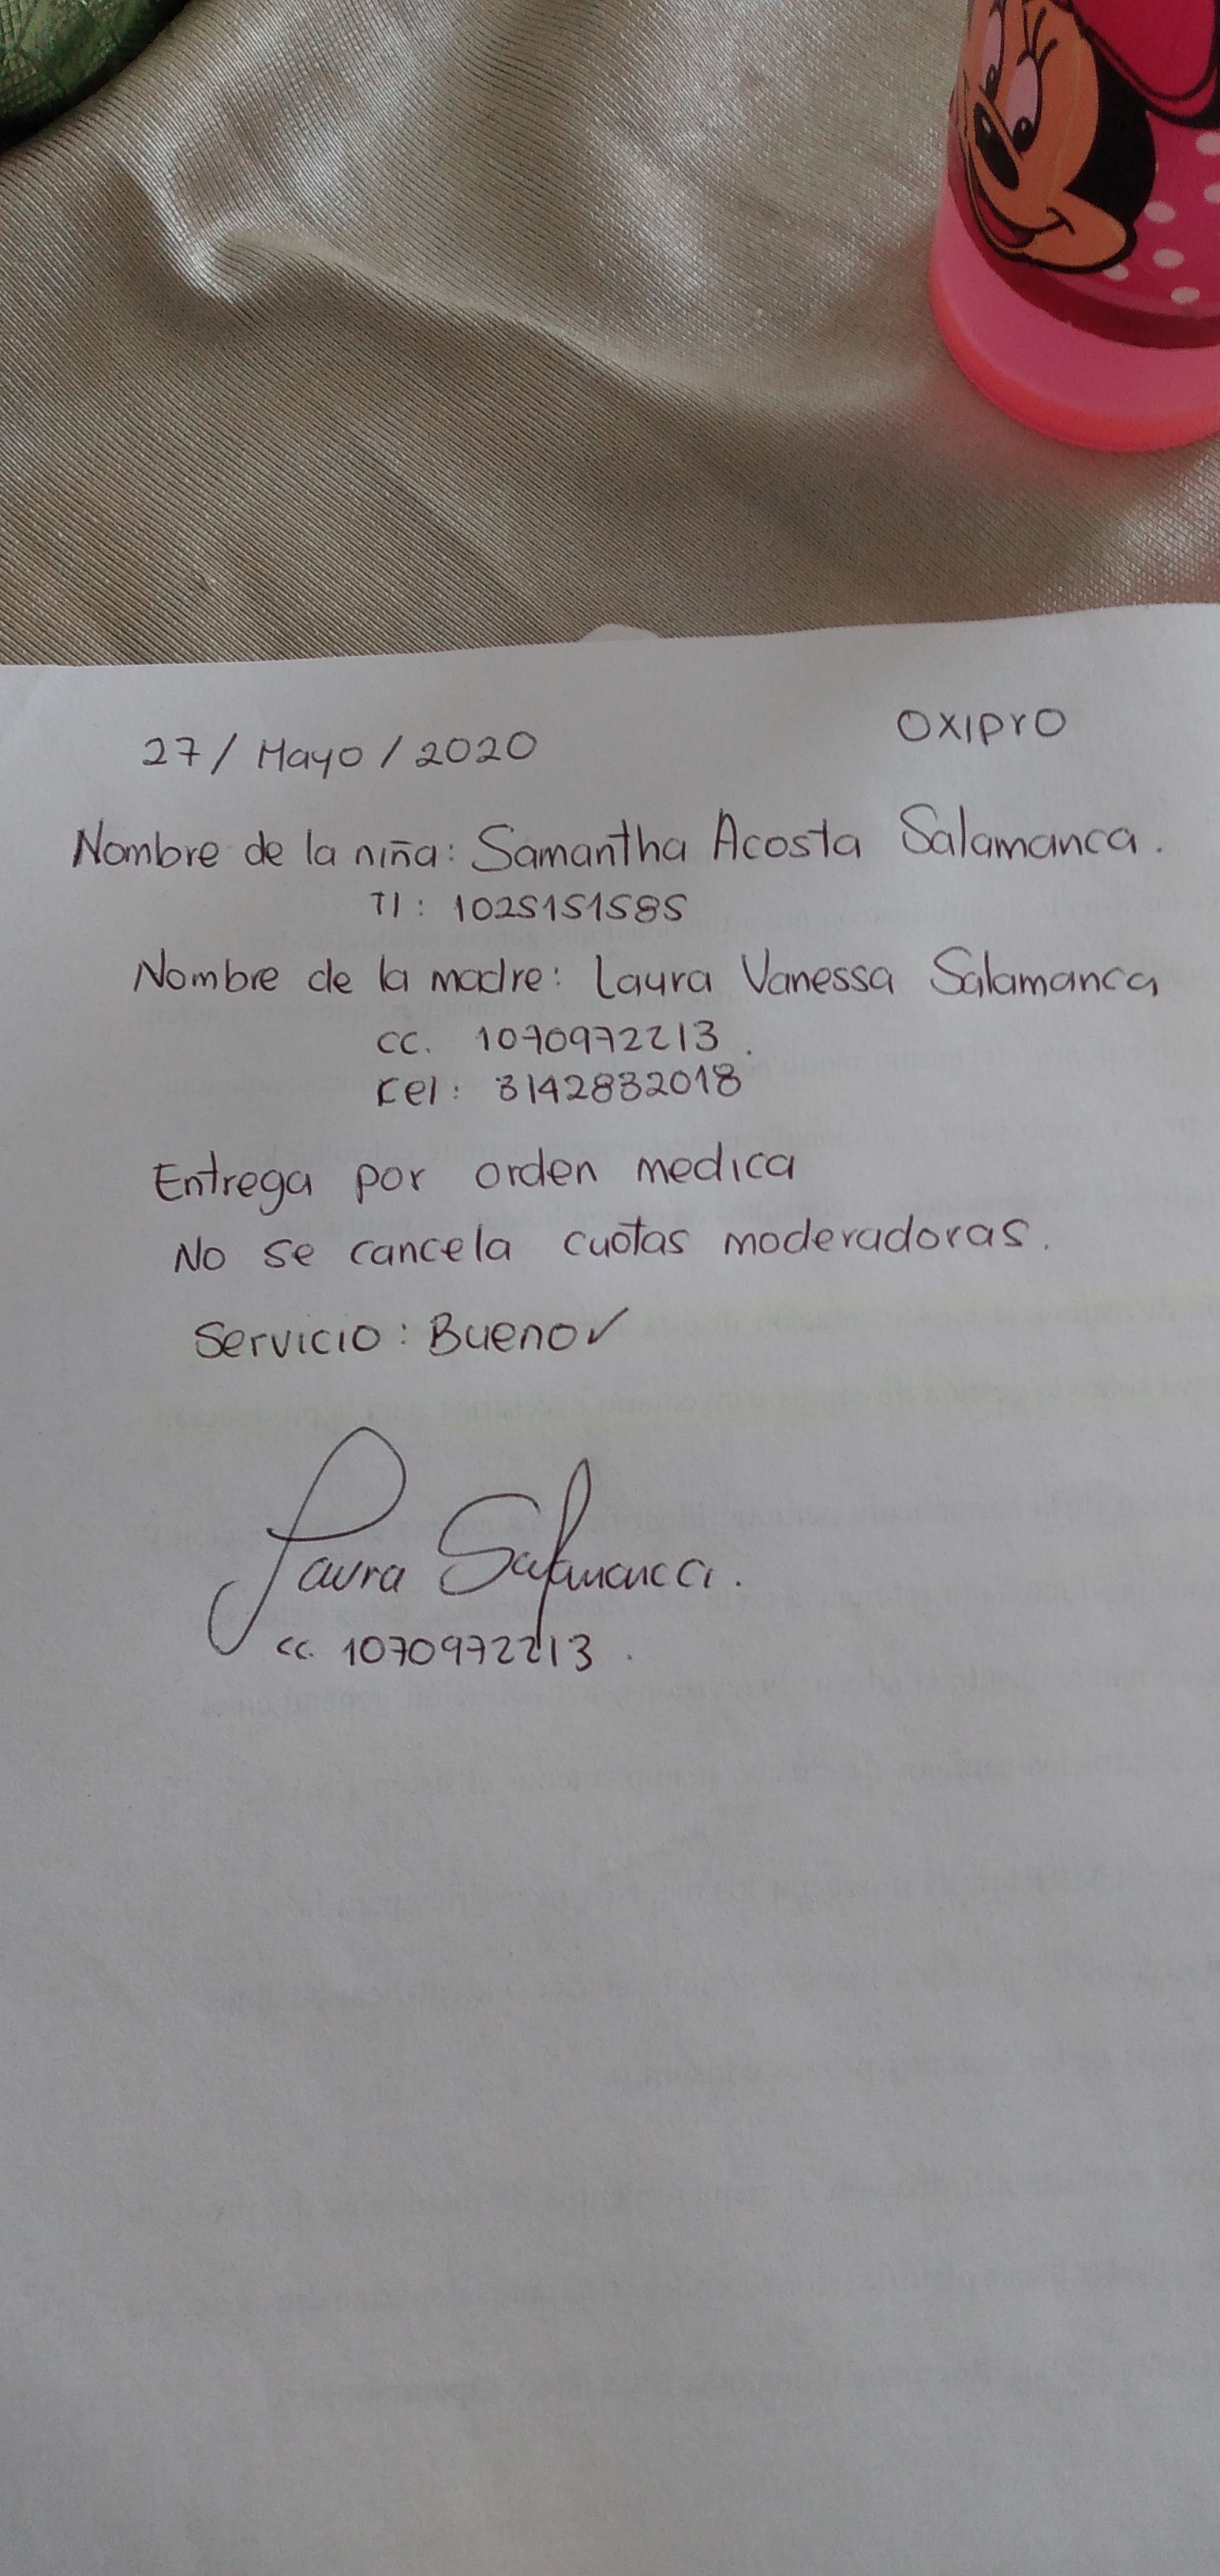 27/ Mayo / 2020
OXIPrO
Nombre de la niña: Samantha Acosta Salamanca.
TI: 1025151585
Nombre de la madre: Laura Vanessa Salamanca
cc. 1070972213.
tel: 3142832018
Entrega por orden medica
No se cancela cuotas moderadoras.
Servicio: Bueno✓
Laura Salamanca.
cc. 1070972213.